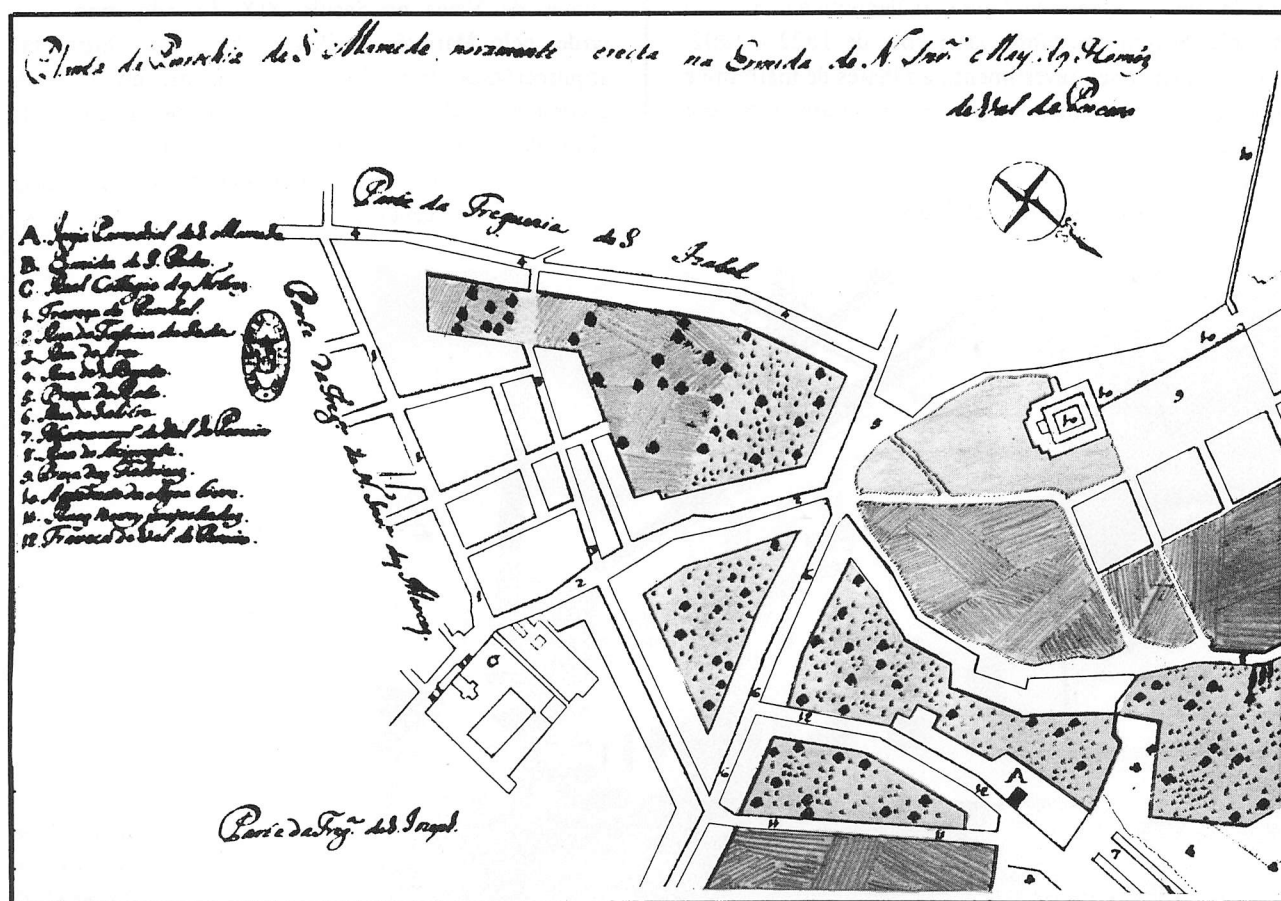 Planta da Parochia de S. Mamede novamente erecta na Ermida de N. Snrª May dos Homẽs
de Val de Pereiro
Parte da Freguezia de S Izabel
A. Igreja Parrochial de S. Mamede
B. Ermida de S. Pedro.
C. Real Collegio dos Nobres
1. Travessa do Pombal.
2 Rua da Fabrica da Seda
3. Rua do
4. Rua de S. Bento.
5. Praça do Rato.
6. Rua do Salitre
7. de Val de Pereiro
8. Rua do
9. Praça das
10. Aqueducto da Agoa livre.
11. Ruas Novas projectadas
12. Travessa de Val de Pereiro.
Parte da Fregª de N. Senrª das Merces
Parte da Fregª de S. Joseph.